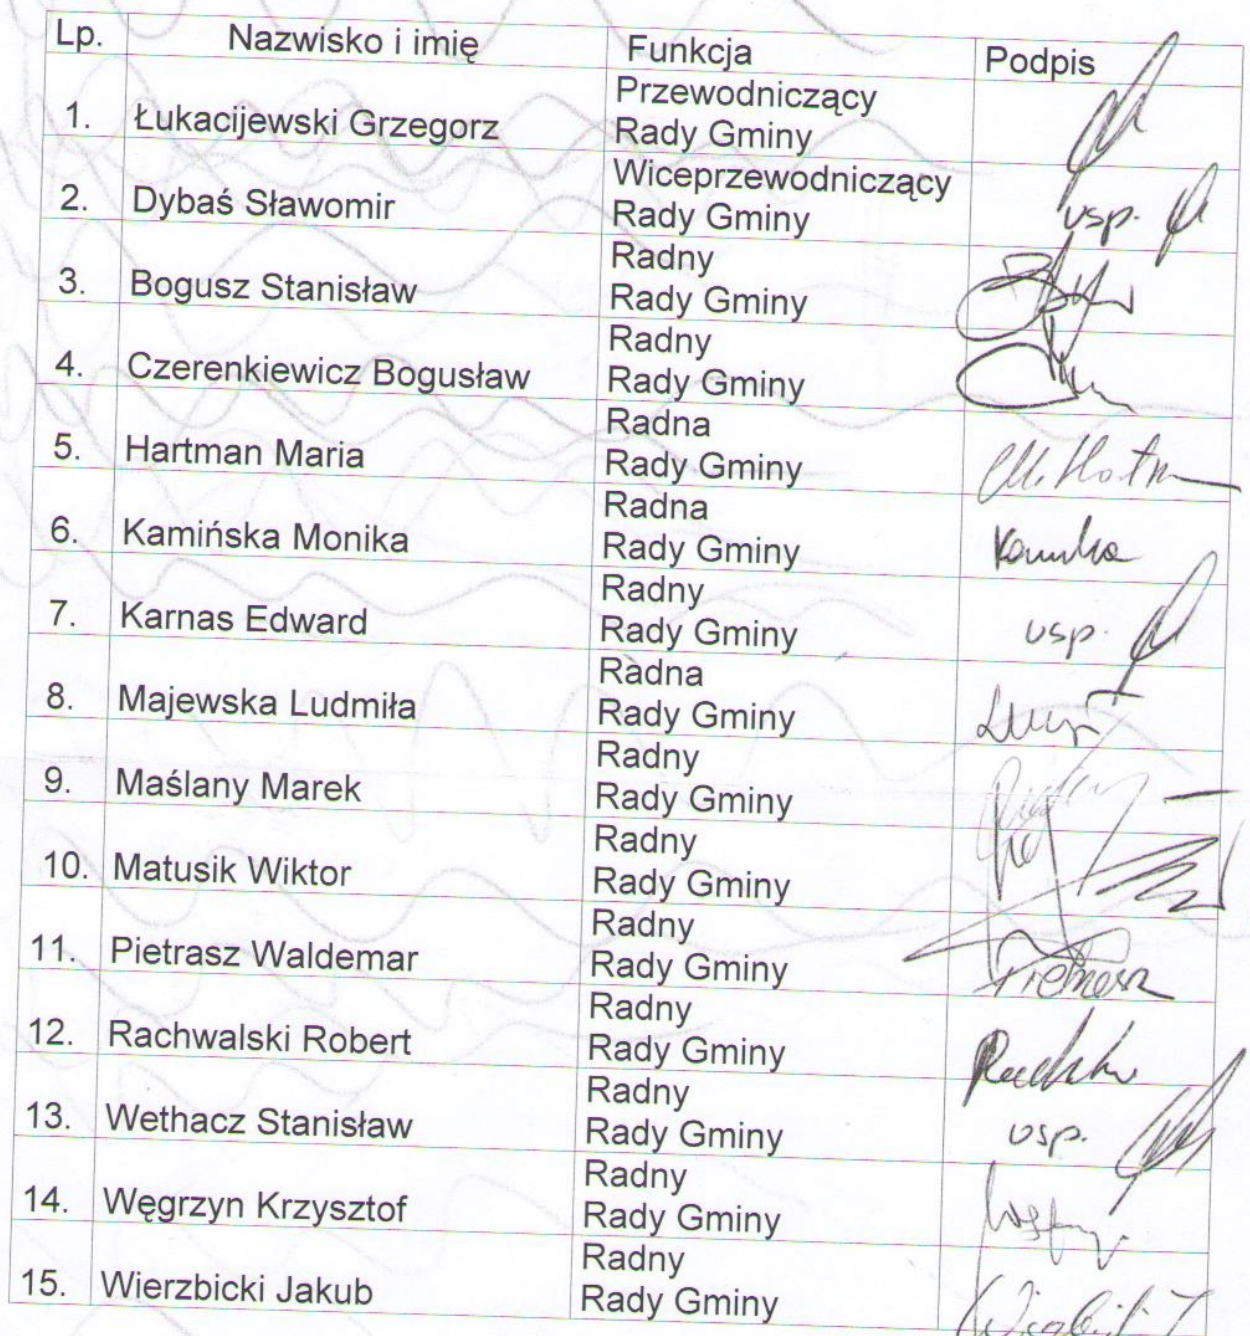 Lp. Nazwisko i imię Funkcja Podpis
1. Łukacijewski Grzegorz Przewodniczący
Rady Gminy
2. Dybaś Sławomir Wiceprzewodniczący
Rady Gminy usp.
3. Bogusz Stanisław Radny
Rady Gminy
4. Czerenkiewicz Bogusław Radny
Rady Gminy
5. Hartman Maria Radna
Rady Gminy
6. Kamińska Monika Radna
Rady Gminy
7. Karnas Edward Radny
Rady Gminy usp.
8. Majewska Ludmiła Radna
Rady Gminy
9. Maślany Marek Radny
Rady Gminy
10. Matusik Wiktor Radny
Rady Gminy
11. Pietrasz Waldemar Radny
Rady Gminy Pietrasz
12. Rachwalski Robert Radny
Rady Gminy
13. Wethacz Stanisław Radny
Rady Gminy usp.
14. Węgrzyn Krzysztof Radny
Rady Gminy
15. Wierzbicki Jakub Radny
Rady Gminy